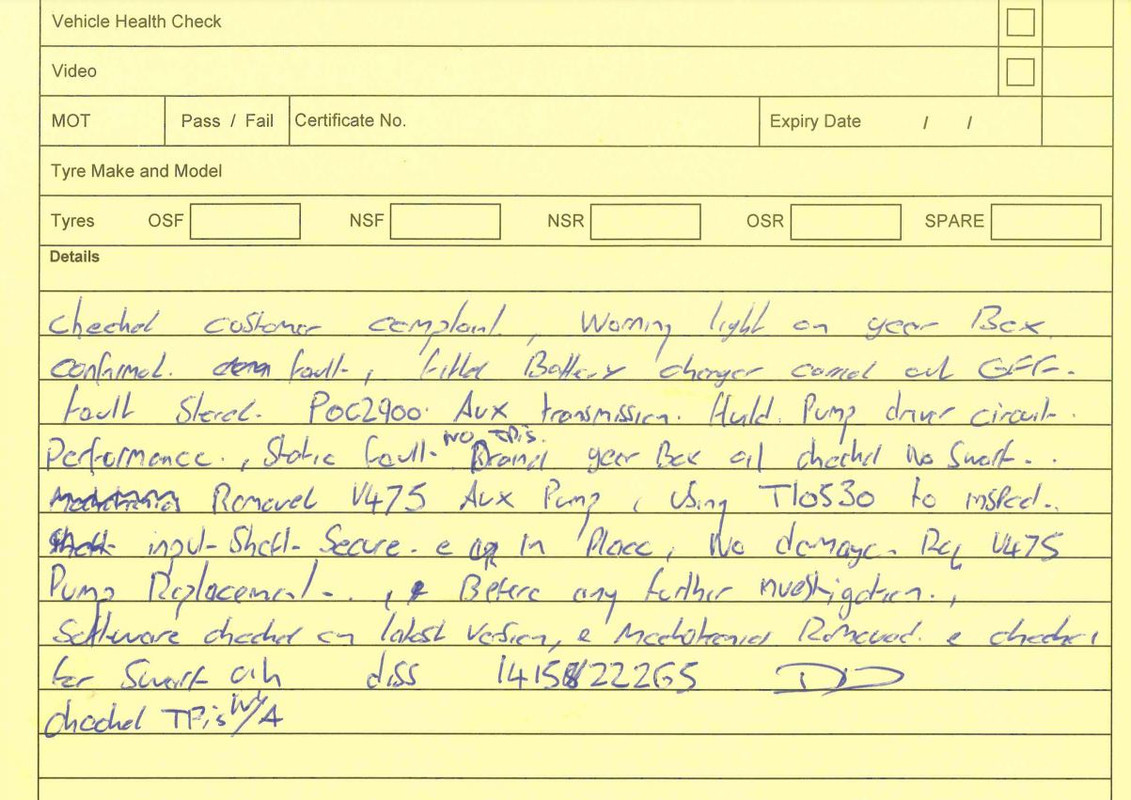 Vehicle Health Check
Video
MOT Pass / Fail Certificate No. Expiry Date / /
Tyre Make and Model
Tyres OSF NSF NSR OSR SPARE
Details
Checked customer complaint, Warning light on gear Box
confirmed. fault, fitted Battery charger carried out GFF.
fault Stored. P0C2900. Aux transmission. fluid. Pump driver circuit.
Performance., Static fault. NO TPis. Draind gear Box oil checked No Swarf..
Removed V475 Aux Pump, using T10530 to insped..
input Shaft. Secure. e in Place, No damage. Req V475
Pump Replacement.., Before any further investigation.,
Software checked on latest version, e Mechatronic Removed. e checked
for Swarf diss
checked TPis N/A